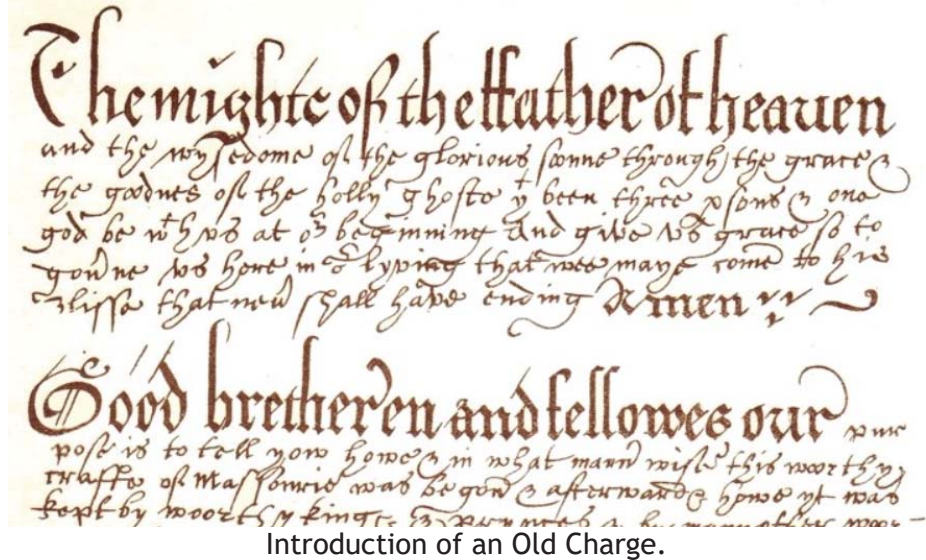 The mighte of the ffather of heaven
and the wysedome of the glorious sonne through the grace &
the goodnes of the holly ghoste yt been three psons & one
god be wth vs at or beginning And give vs grace so to
gou'ne vs here in or lyving that wee maye come to his
blisse that neu' shall have ending Amen
Good bretheren and fellowes our pur
pose is to tell yow howe & in what mann' wise this woorthy
crafte of Massonrie was begon & afterwards howe yt was
kept by woorthy kinges & prynces & by many other woor-
Introduction of an Old Charge.